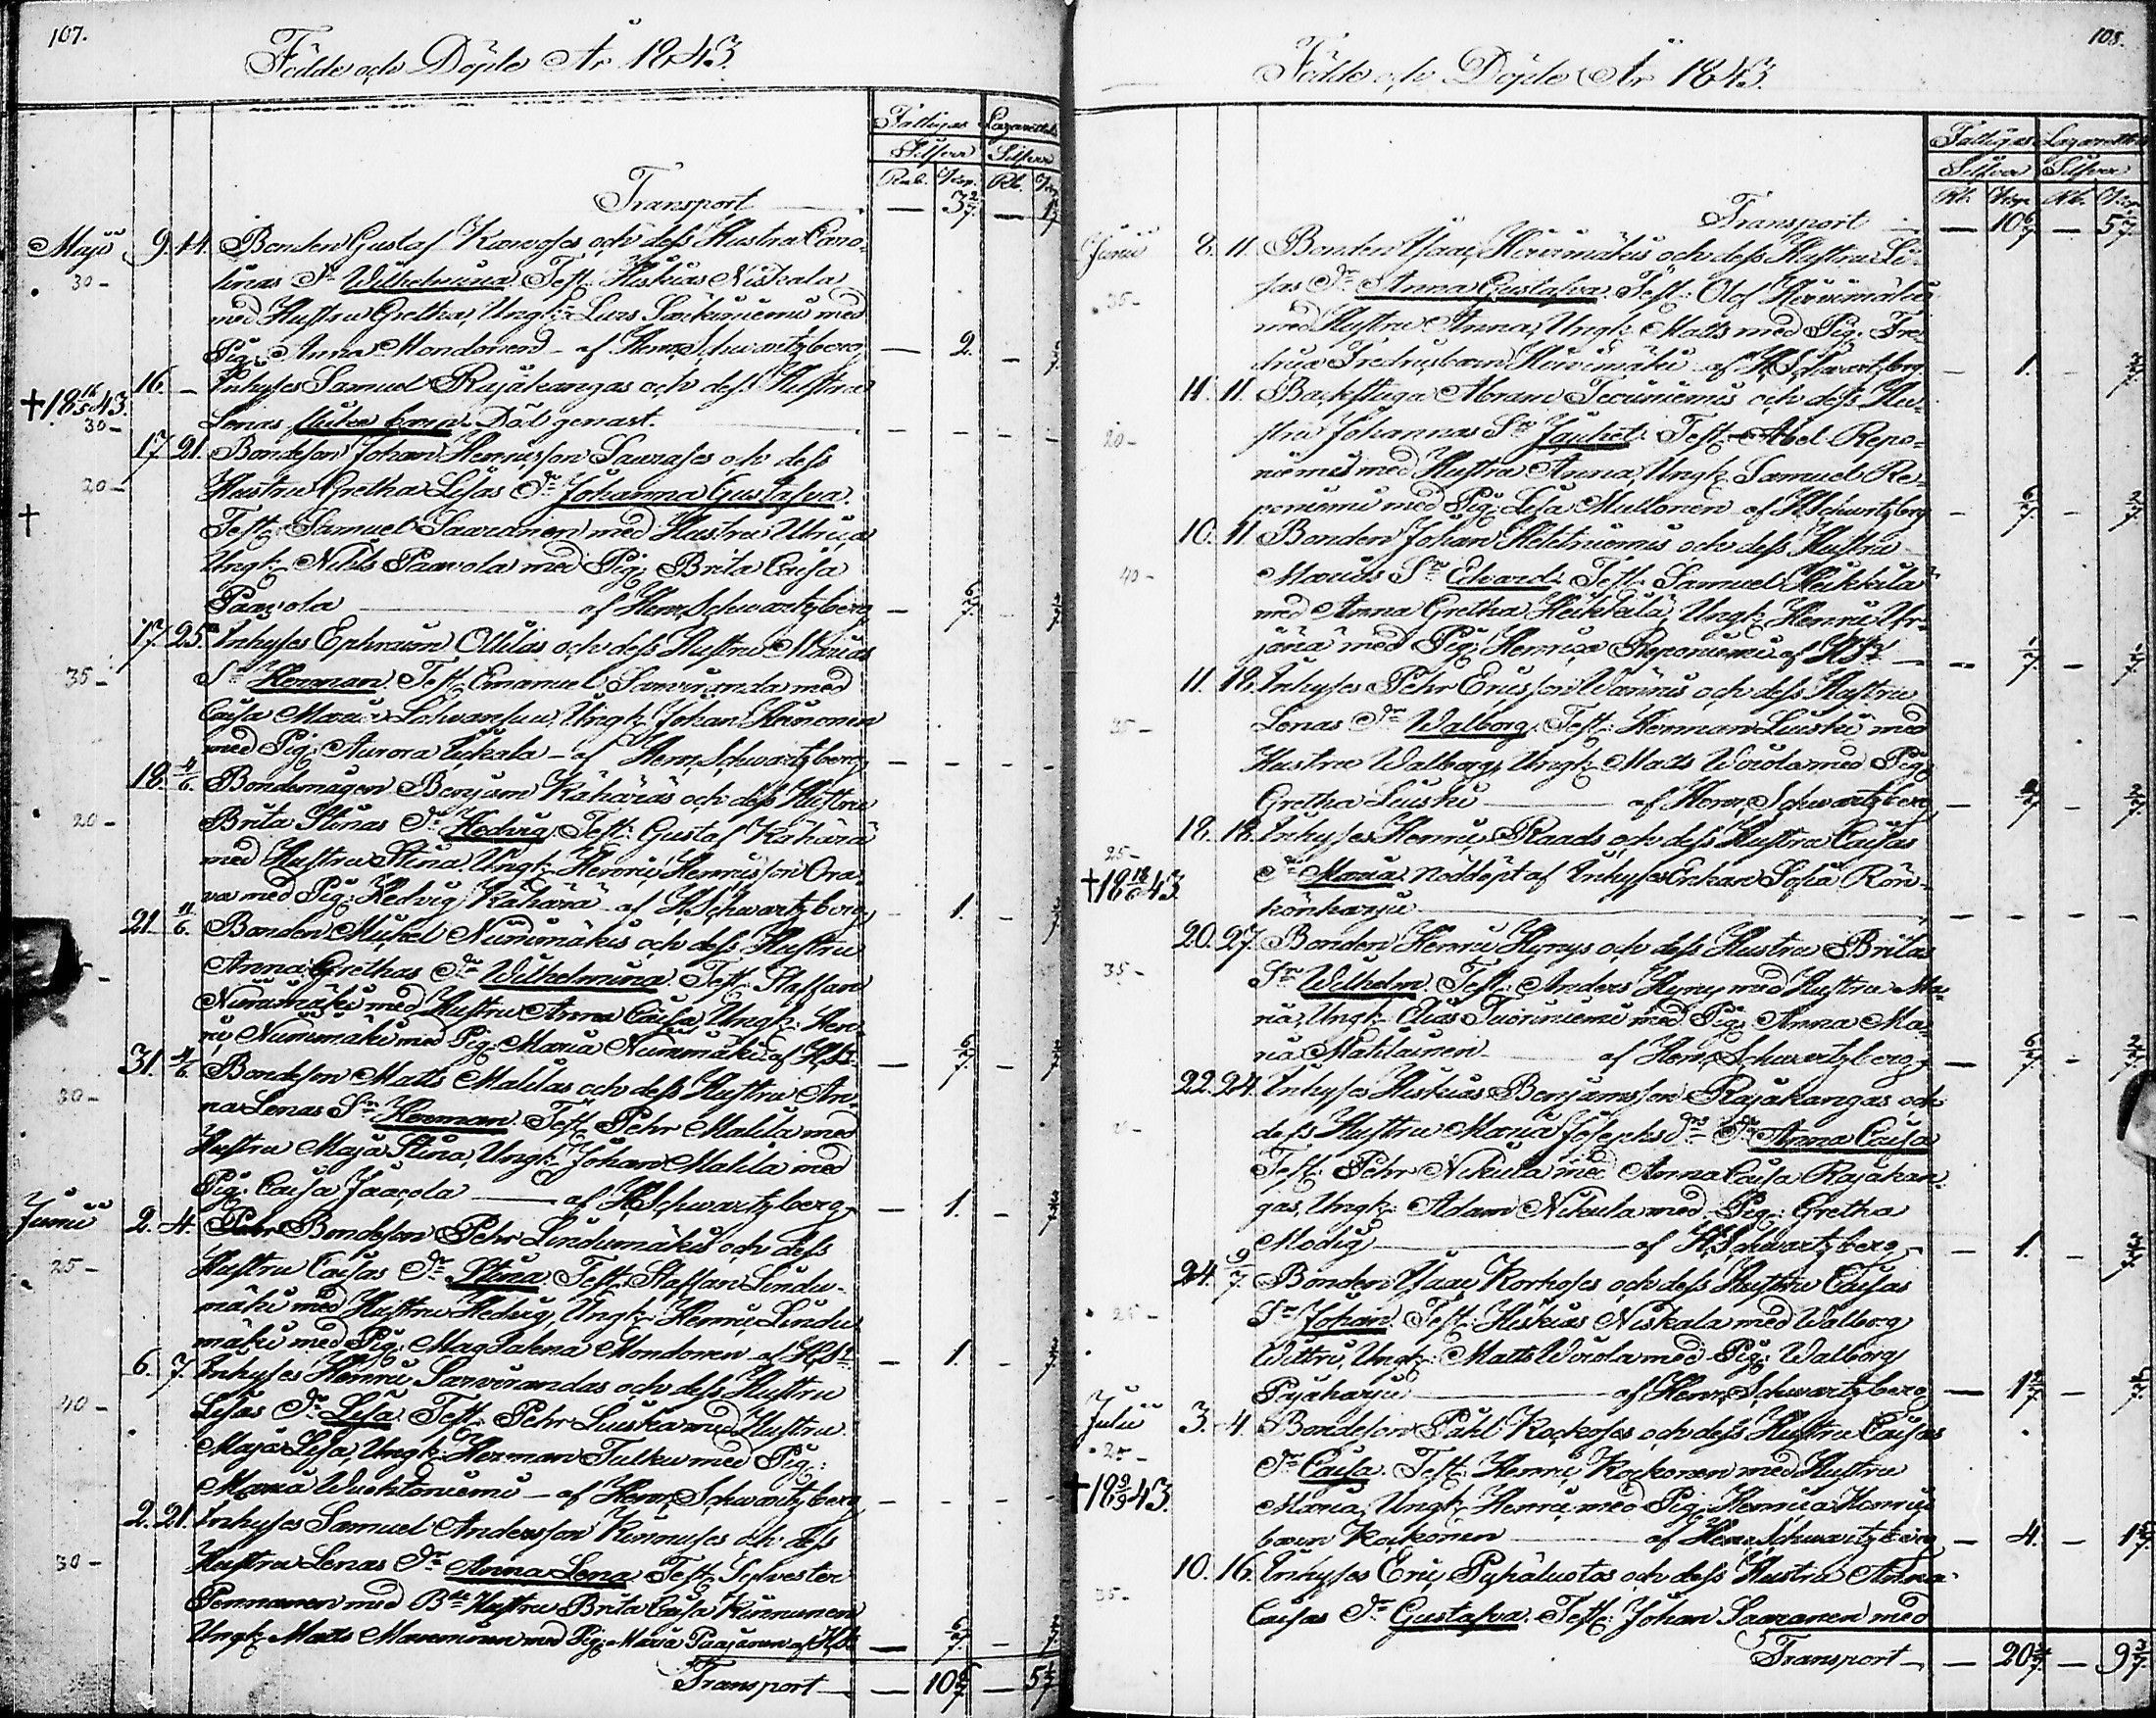 107.
Födde och Döpte År 1843.
Fattigas Lazarettet
Silfver Silfver
Rub. Kop. Rb. Kop
Transport — 3 2/7 —
Maji 9. 14. Bonden Gustaf och dess Hustru Caro-
30 - linas Dr Wilhelmina. Test. Hiskias Niskala
med Hustru Gretha, Ungk: Lars med
Pig: Anna Mondonen - af Herr Schwartzberg — 2. -
†18 16/5 43. 16. - Inhyses Samuel Rajakangas och dess Hustru
30 - Lenas Död genast. - - - -
17 21. Bondeson Johan Henriksson och dess
20 - Hustru Gretha Lisas Dr Johanna Gustafva.
† Test: Samuel Saaranen med Hustru Ulrica
Ungk: Nikls Paavola med Pig: Brita Caisa
Paavola — af Herr Schwartzberg - 6/7. -
17. 25. Inhyses Ephraim Ollilas och dess Hustru Marias
35 - Sn Herman. Test: Emanuel Sarviranda med
Caisa Maria Ungk: Johan Heinonen
med Pig: Aurora - af Herr Schwartzberg - - - -
18. 4/6. Bondemågen Benjam Kähäräs och dess Hustru
20 - Brita Stinas Dr Hedvig. Test: Gustaf Kähärä
med Hustru Stina. Ungk: Henric Henriksson Ora-
va med Pig: Hedvig Kähärä - af H. Schwartzberg - 1. -
21. 11/6. Bonden Mickel Nurmimäkis och dess Hustru
Anna Grethas Dr Wilhelmina. Test. Staffan
Nurmimäki med Hustru Anna Caisa, Ungk: Hen-
ric Nurmimäki med Pig: Maria Nurmimäki af H. S. — 6/7. -
31. 4/6 Bondeson Matts Malilas och dess Hustru An-
30 - na Lenas Sn Herman. Test: Pehr Malila med
Hustru Maja Stina, Ungk: Johan Malila med
Pig: Caisa Jaacola — af H. Schwartzberg - 1. -
Junii 2. 4. Bondeson Pehr Lindumäkis och dess
25 - Hustru Caisas Dr Stina. Test: Staffan Lindu-
mäki med Hustru Hedvig, Ungk: Henric Lindu-
mäki med Pig: Magdalena Mondonen af H. S. — 1. -
6. 7. Inhyses Henric Sarvirandas och dess Hustru
40 - Lisas Dr Lisa. Test: Pehr Luiska med Hustru
Maja Lisa, Ungk: Herman Tulku med Pig:
Maria Wuohtoniemi - af Herr Schwartzberg - - - -
2. 21. Inhyses Samuel Andersson och dess
30 - Hustru Lenas Dr Anna Lena. Test: Sylvester
Pennanen med Hustru Brita Caisa Kinnunen
Ungk: Matts med Pig: Maria Paajanen af H. S. — 6/7. -
Transport — 10 6/7 — 5 1/7
108.
Födde och Döpte År 1843.
Fattigas Lazarettets
Silfver Silfver
Rb. Kop. Rb. Kop.
Transport — 10 6/7 — 5
Junii 8. 11. Bonden Isaac Hirvimäkis och dess Hustru Li-
35 - sas Dr Anna Gustafva. Test: Olof Hirvimäki
med Hustru Anna, Ungk: Matts med Pig: Fre-
drica Fredricsbarn Hirvimäki af H. Schwartzberg - 1. -
11. 11. Backstuga Abram Teciniemis och dess Hu-
20 - stru Johannas Sn Test: Abel Repo-
niemi med Hustru Anna, Ungk: Samuel Re-
poniemi med Pig: Lisa Mullonen af H. Schwartzberg - 6/7. -
10. 11. Bonden Johan och dess Hustru
40 - Marias Sn Edvard. Test: Samuel Heikkilä
med Anna Gretha Heikkilä, Ungk: Henric Ur-
jänä med Pig: Henrica Reponiemi af H. S. -
11. 18. Inhyses Pehr Ericsson Wänris och dess Hustru
35 - Lenas Dr Walborg. Test: Herman Luiski med
Hustru Walborg, Ungk: Matts Woidla med Pig:
Gretha Luiski — af Herr Schwartzberg -
18. 18. Inhyses Henric Raads och dess Hustru Caisas
25 - Dr Maria. Nöddöpt af Inhyses Enkan Sofia Rön-
†18 18/6 43. könharju - - - -
20. 27. Bonden Henric Hynys och dess Hustru Britas
35 - Sn Wilhelm. Test: Anders Hyny med Hustru Ma-
ria, Ungk: Elias Tuoriniemi med Pig: Anna Ma-
ria Matilainen — af Herr Schwartzberg — 6/7 -
22. 24. Inhyses Hiskias Benjamsson Rajakangas och
dess Hustru Maria Josephsdr Dr Anna Caisa
Test: Pehr Nikula med Anna Caisa Rajakan-
gas, Ungk: Adam Nikula med Pig: Gretha
Modig — af H. Schwartzberg — 1. -
24. 9/7. Bonden Isaac Korhoses och dess Hustru Caisas
25 - Sn Johan. Test: Hiskias Niskala med Walborg
Wittri, Ungk: Matts Woidla med Pig: Walborg
Pajaharju — af Herr Schwartzberg — 1 -
Julii 3. 4. Bondeson Påhl Kockoses och dess Hustru Caisas
25 - Dr Caisa. Test: Henric Kockonen med Hustru
†18 9/9 43. Maria, Ungk: Henric med Pig: Henrica Henrics
barn Kockonen — af Herr Schwartzberg — 4. -
10. 16. Inhyses Eric Pyhäluotos och dess Hustru Anna
35 - Caisas Dr Gustafva. Test: Johan Saaranen med
Transport — 20 — 9 3/7